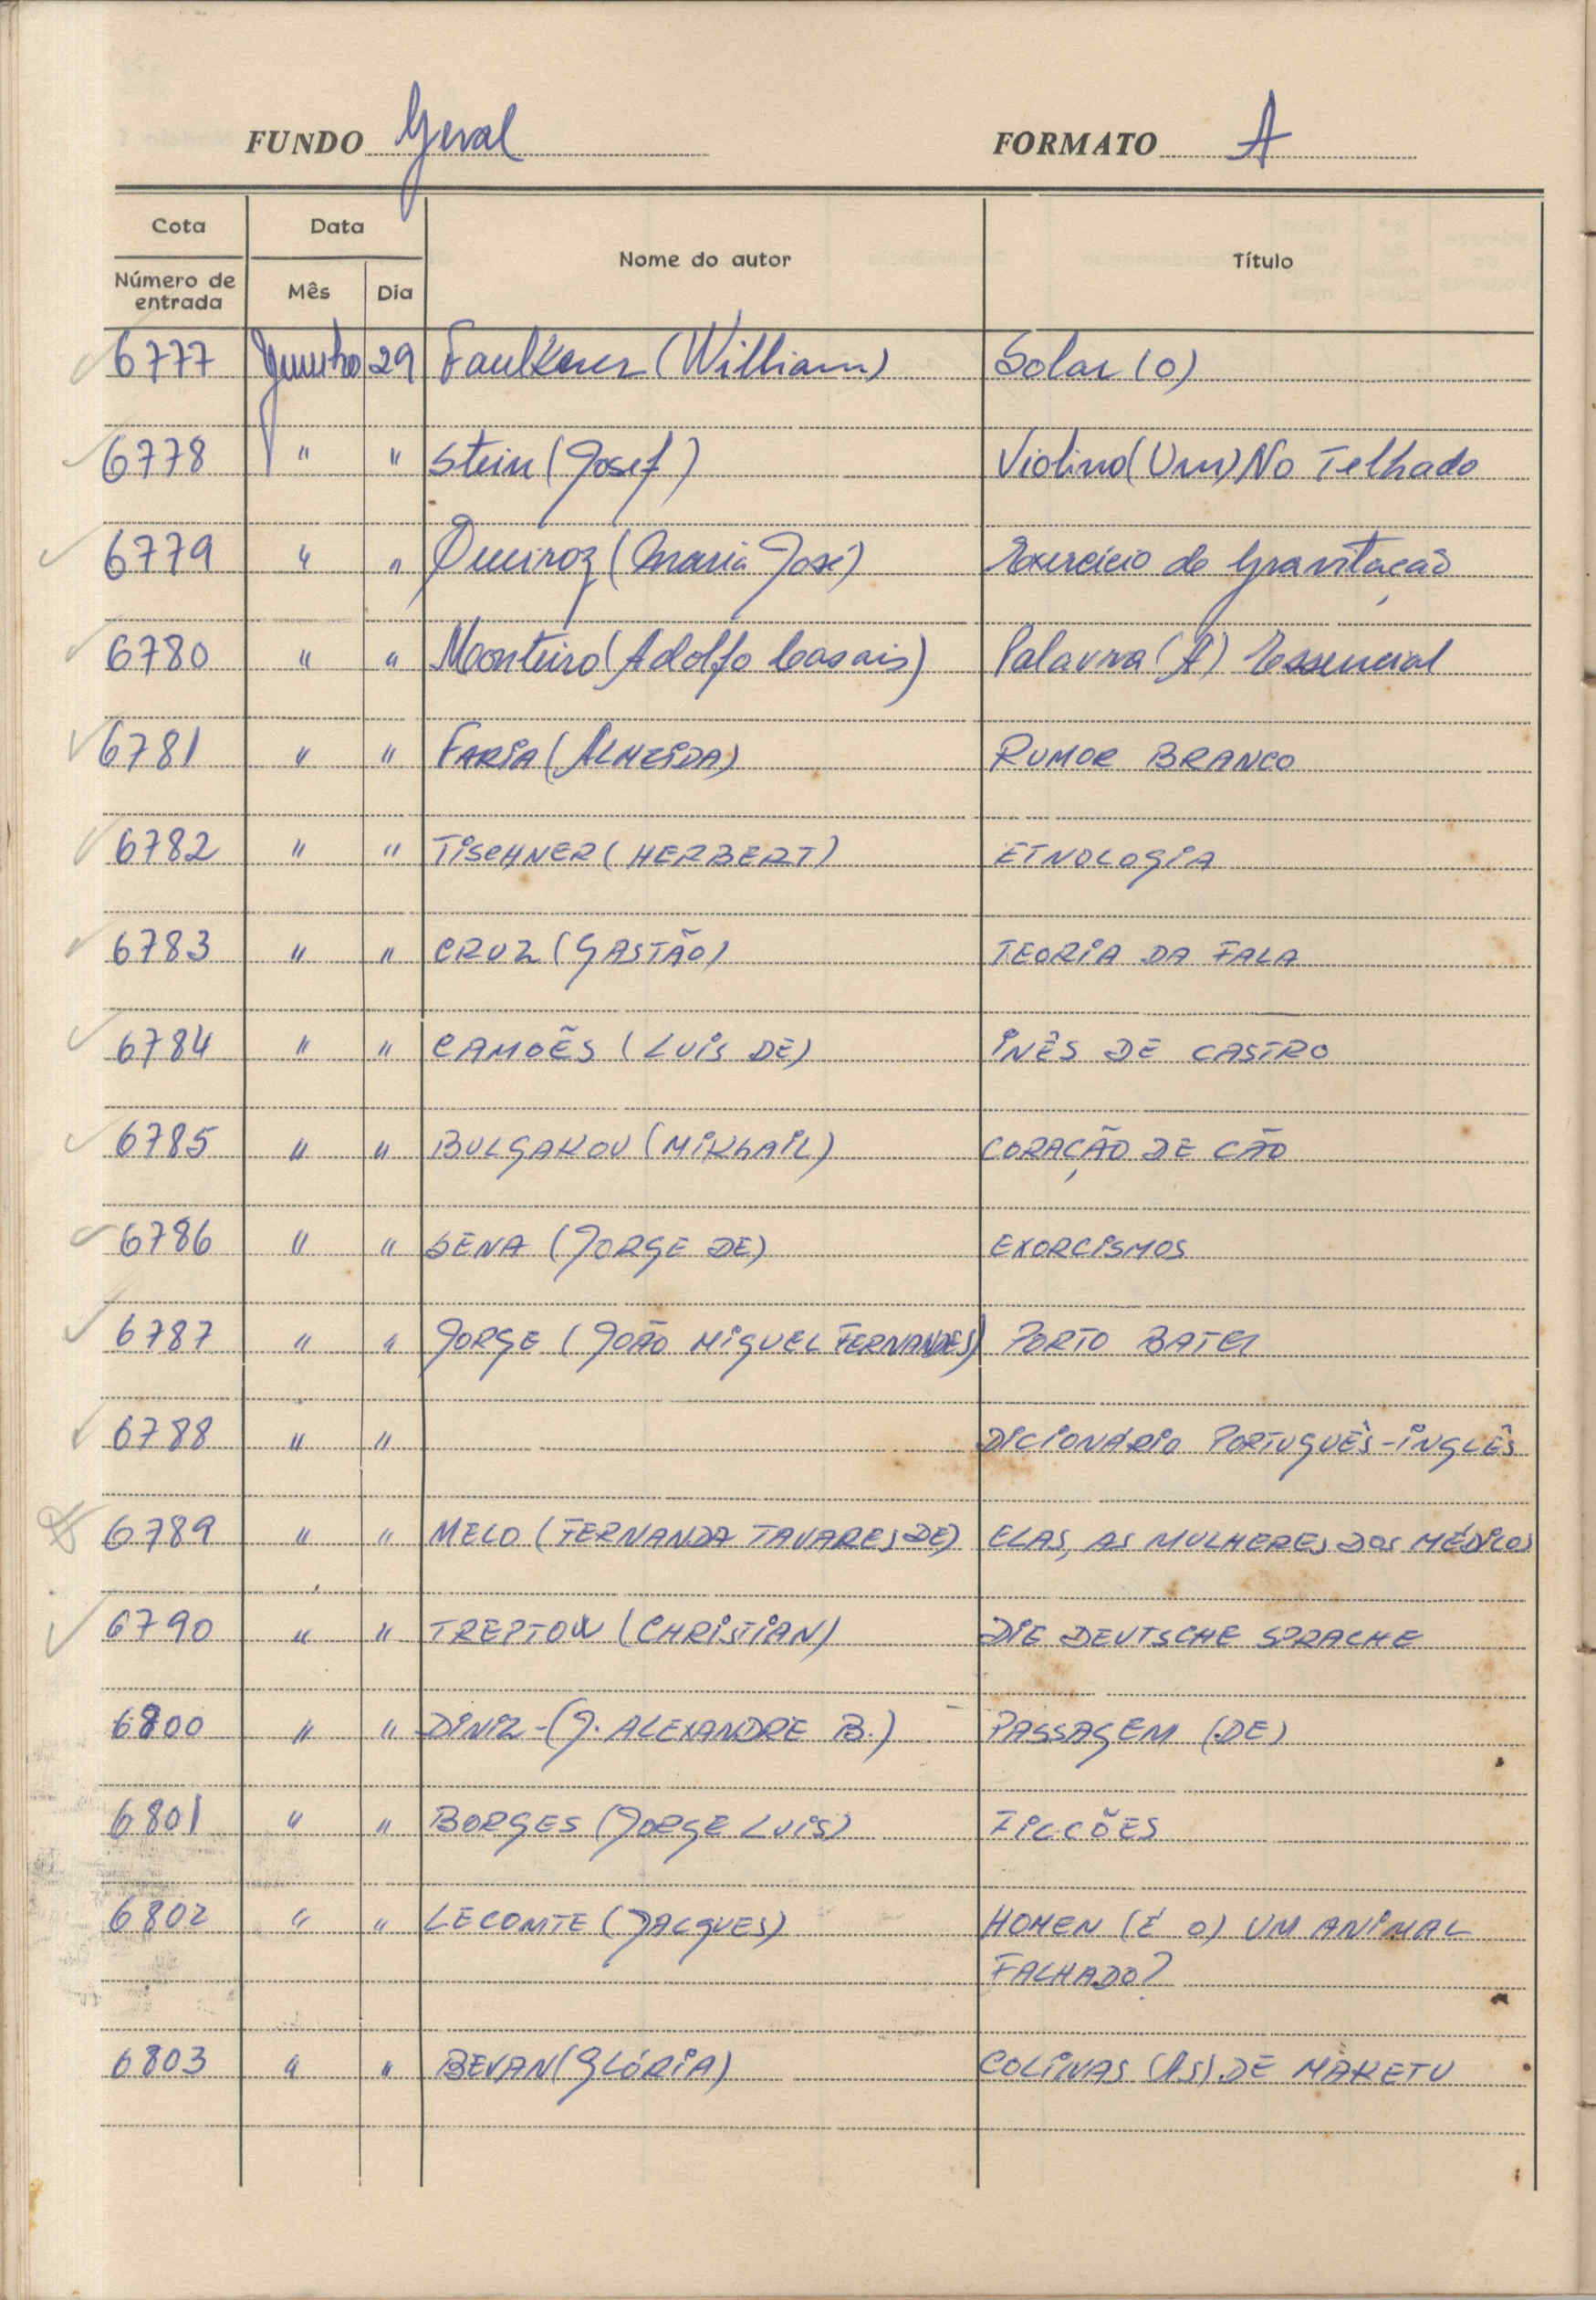 FUNDO Geral FORMATO A
Cota Data Nome do autor Título
Número de entrada Mês Dia
6777 Junho 29 Faulkner (William) Solar (O)
6778 " " Stein (Josef) Violino (Um) No Telhado
6779 " " Queiroz (Maria José) Exercício de Gravitação
6780 " " Monteiro (Adolfo Casais) Palavra (A) Essencial
6781 " " FARIA (ALMEIDA) RUMOR BRANCO
6782 " " TISCHNER (HERBERT) ETNOLOGIA
6783 " " CRUZ (GASTÃO) TEORIA DA FALA
6784 " " CAMOÊS (LUIS DE) INÊS DE CASTRO
6785 " " BULGAKOV (MIKhAIL) CORAÇÃO DE CÃO
6786 " " SENA (JORGE DE) EXORCISMOS
6787 " " JORGE (JOÃO MIGUEL FERNANDES) PORTO BATEL
6788 " " DICIONÁRIO PORTUGUÊS-INGLÊS
6789 " " MELO (FERNANDA TAVARES DE) ELAS, AS MULHERES DOS MÉDICOS
6790 " " TREPTOW (CHRISTIAN) DIE DEUTSCHE SPRACHE
6800 " " DINIZ-(J. ALEXANDRE B.) PASSAGEM (DE)
6801 " " BORGES (JORGE LUIS) FICCÕES
6802 " " LECOMTE (JACQUES) HOMEN (É O) UM ANIMAL
FALHADO?
6803 " " BEVAN (GLÓRIA) COLINAS (AS) DE MAKETU